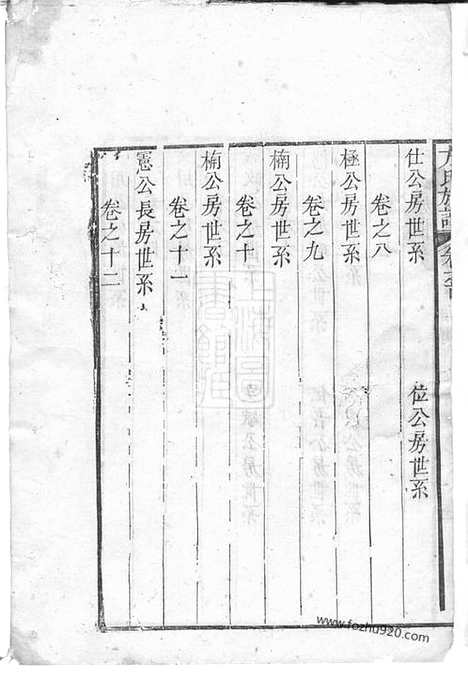 仕公房世系 位公房世系
卷之八
極公房世系
卷之九
楠公房世系
卷之十
楠公房世系
卷之十一
憲公長房世系
卷之十二
www.fozhu920.com